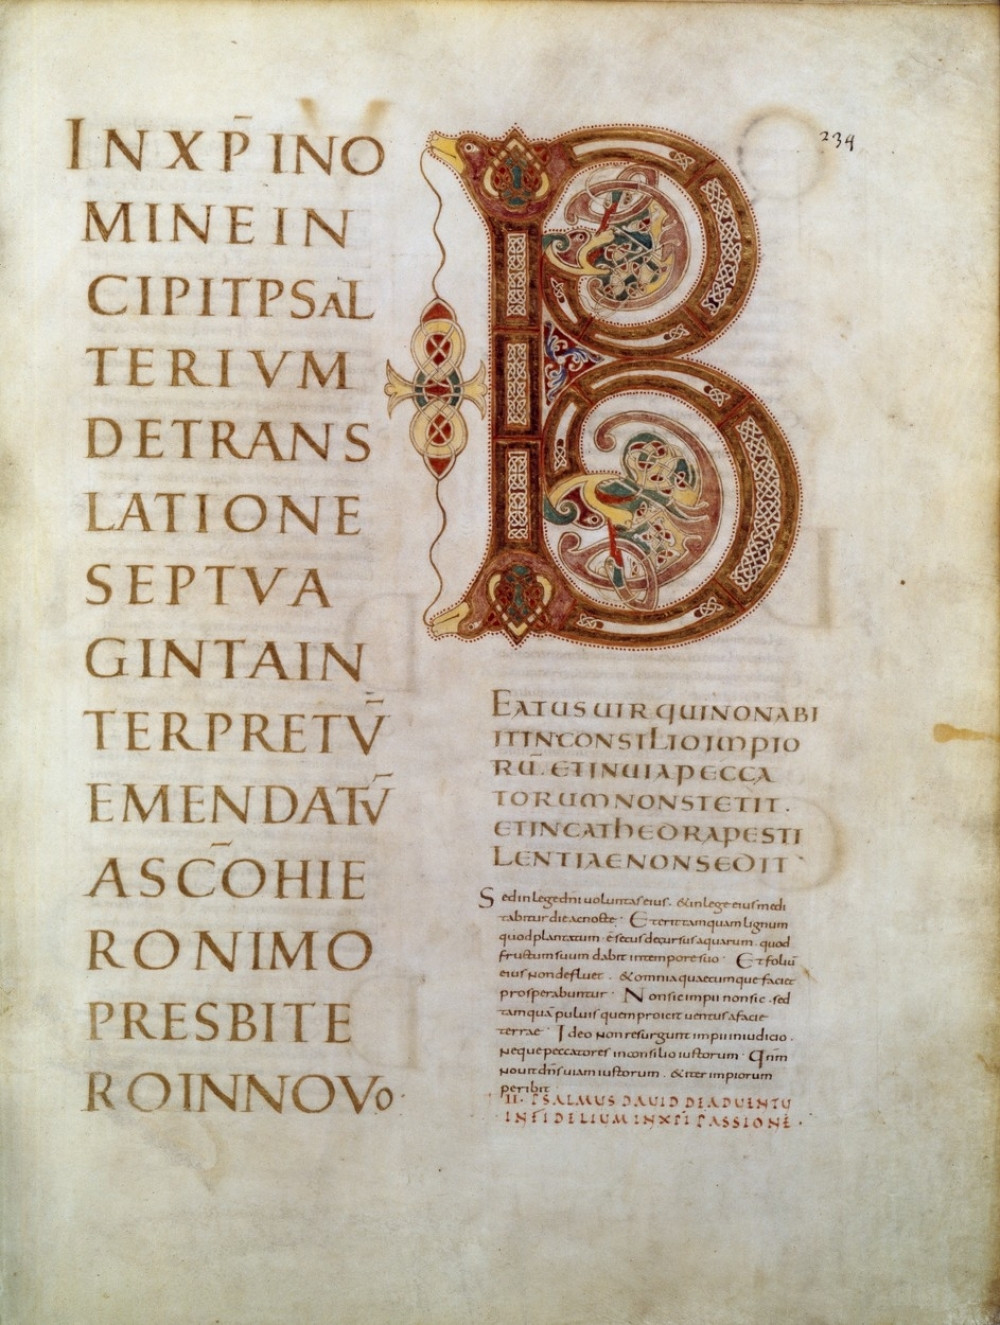 234
INXP̄I NO
MINE IN
CIPIT PSAL
TERIVM
DE TRANS
LATIONE
SEPTVA
GINTA IN
TERPRETV̄
EMENDATV̄
A SC̄O HIE
RONIMO
PRESBITE
RO IN NOVO·
B
EATUS UIR QUI NON ABI
IT IN CONSILIO IMPIO
RŪ. ET IN UIA PECCA
TORUM NON STETIT.
ET IN CATHEDRA PESTI
LENTIAE NON SEDIT
Sed in lege dn̄i uoluntas eius. & in lege eius medi
tabitur die ac nocte· Et erit tamquam lignum
quod plantatum ē secus decursus aquarum· quod
fructum suum dabit in tempore suo· Et foliū
eius non defluet. & omnia quaecumque faciet
prosperabuntur· Non sic impii non sic. sed
tamquā puluis quem proicit uentus a facie
terrae· Ideo non resurgunt impii in iudicio.
neque peccatores in consilio iustorum· Qnm
nouit dn̄s uiam iustorum. & iter impiorum
peribit
II. PSALMUS DAUID DE ADUENTU
INFIDELIUM IN XP̄I PASSIONE·